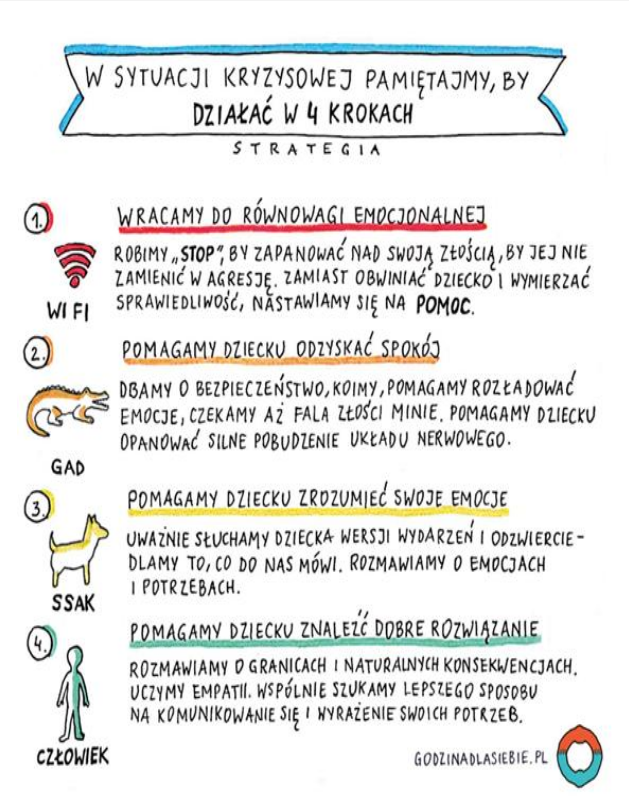 W SYTUACJI KRYZYSOWEJ PAMIĘTAJMY, BY
DZIAŁAĆ W 4 KROKACH
STRATEGIA
1.
WRACAMY DO RÓWNOWAGI EMOCJONALNEJ
ROBIMY „STOP”, BY ZAPANOWAĆ NAD SWOJĄ ZŁOŚCIĄ, BY JEJ NIE
ZAMIENIĆ W AGRESJĘ. ZAMIAST OBWINIAĆ DZIECKO I WYMIERZAĆ
SPRAWIEDLIWOŚĆ, NASTAWIAMY SIĘ NA POMOC.
WI FI
2.
POMAGAMY DZIECKU ODZYSKAĆ SPOKÓJ
DBAMY O BEZPIECZEŃSTWO, KOIMY, POMAGAMY ROZŁADOWAĆ
EMOCJE, CZEKAMY AŻ FALA ZŁOŚCI MINIE. POMAGAMY DZIECKU
OPANOWAĆ SILNE POBUDZENIE UKŁADU NERWOWEGO.
GAD
3.
POMAGAMY DZIECKU ZROZUMIEĆ SWOJE EMOCJE
UWAŻNIE SŁUCHAMY DZIECKA WERSJI WYDARZEŃ I ODZWIERCIE-
DLAMY TO, CO DO NAS MÓWI. ROZMAWIAMY O EMOCJACH
I POTRZEBACH.
SSAK
4.
POMAGAMY DZIECKU ZNALEŹĆ DOBRE ROZWIĄZANIE
ROZMAWIAMY O GRANICACH I NATURALNYCH KONSEKWENCJACH.
UCZYMY EMPATII. WSPÓLNIE SZUKAMY LEPSZEGO SPOSOBU
NA KOMUNIKOWANIE SIĘ I WYRAŻENIE SWOICH POTRZEB.
CZŁOWIEK
GODZINADLASIEBIE.PL